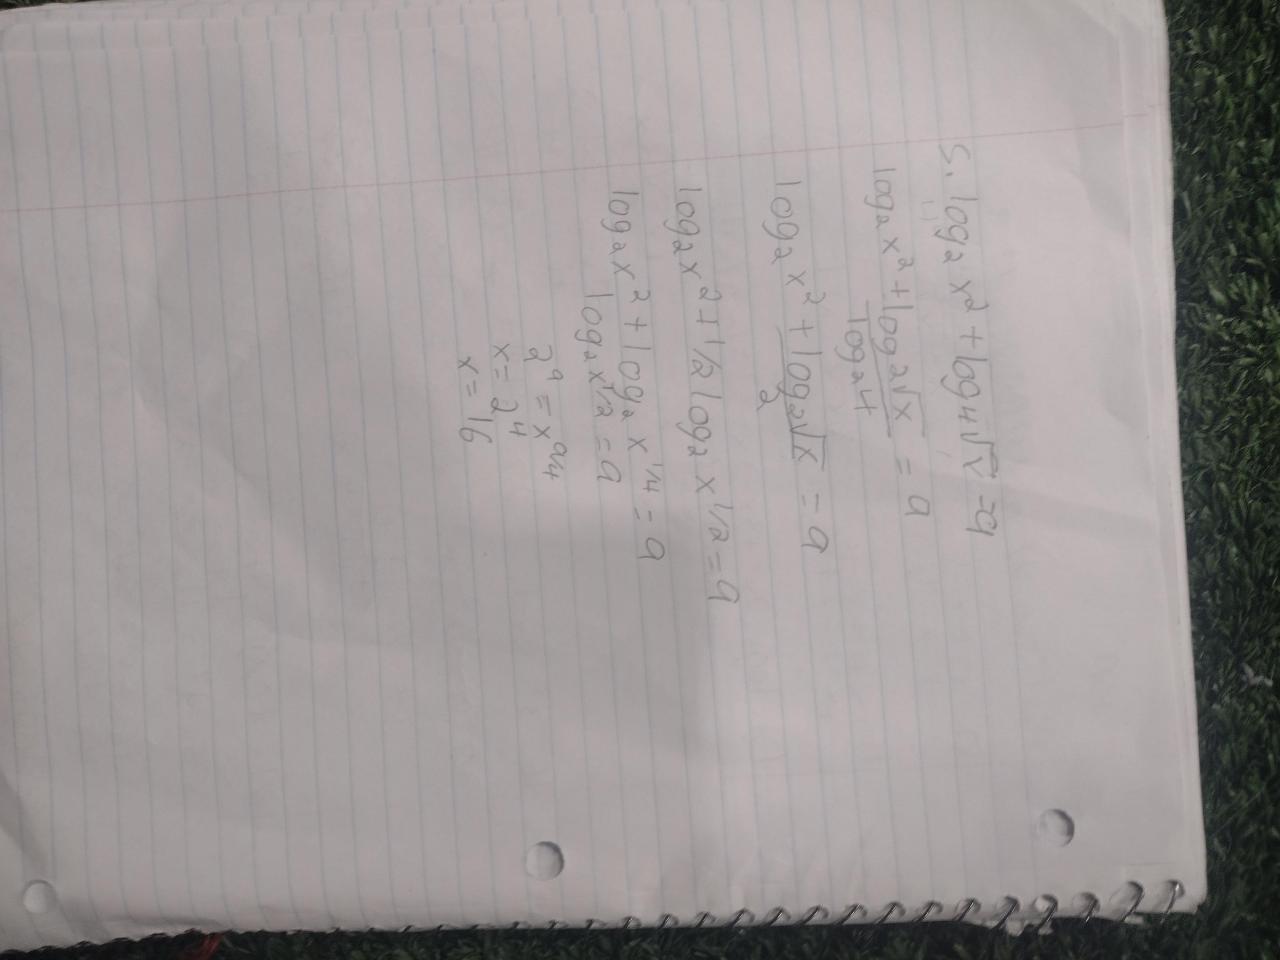 5. log₂ x² + log₄ √x = 9
log₂ x² + log₂√x / log₂4 = 9
log₂ x² + log₂√x / 2 = 9
log₂ x² + 1/2 log₂ x^1/2 = 9
log₂ x² + log₂ x^1/4 = 9
log₂ x^1/2 = 9
2⁹ = x^9/4
x = 2⁴
x = 16